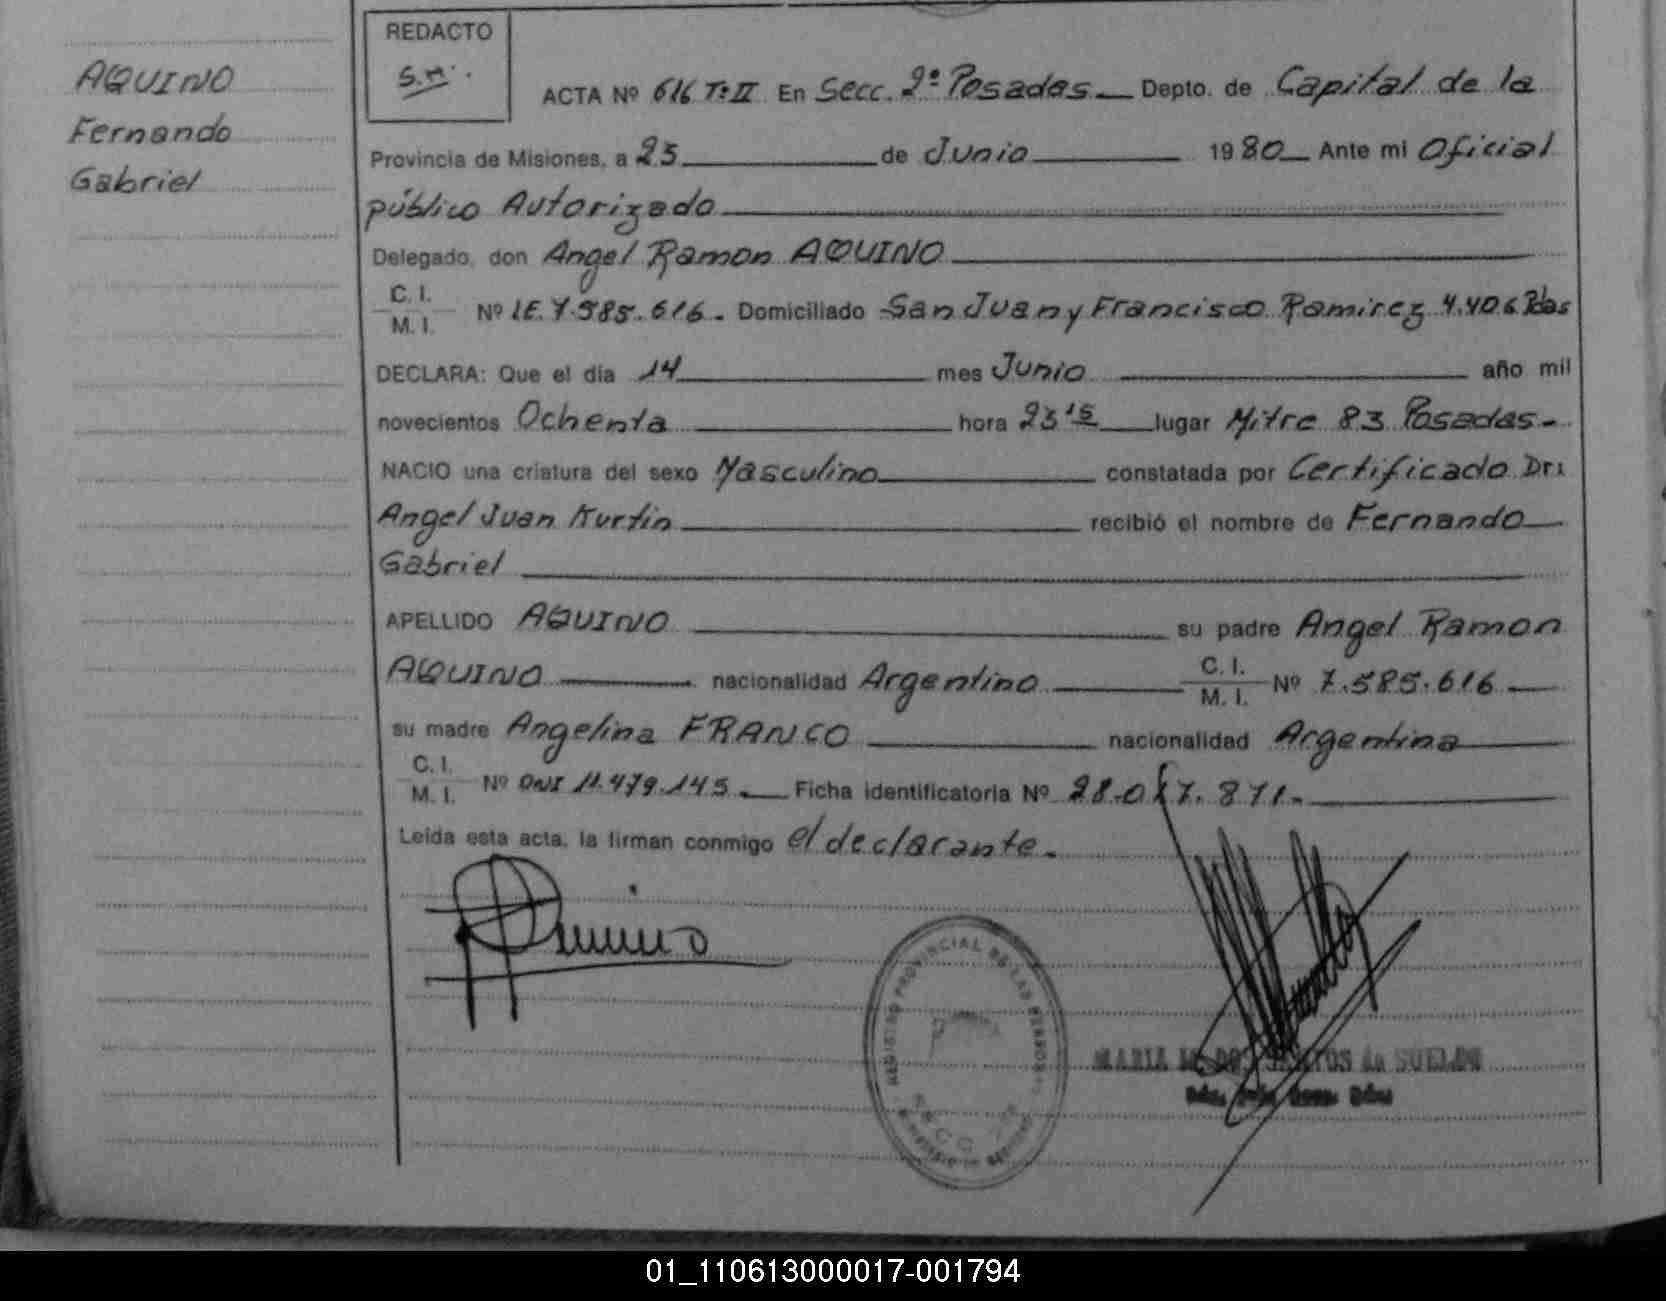 AQUINO
Fernando
Gabriel
REDACTO
S.M.
ACTA Nº 616 Tº II En Secc. 2º Posadas Depto. de Capital de la
Provincia de Misiones, a 25 de Junio 1980 Ante mi Oficial
público Autorizado
Delegado, don Angel Ramon AQUINO
C. I.
M. I. Nº LE. 7.585.616. Domiciliado San Juan y Francisco Ramirez 4.406 Pdas
DECLARA: Que el día 14 mes Junio año mil
novecientos Ochenta hora 23'15 lugar Mitre 83 Posadas.-
NACIO una criatura del sexo Masculino constatada por Certificado Dr:
Angel Juan Kurtin recibió el nombre de Fernando
Gabriel
APELLIDO AQUINO su padre Angel Ramon
AQUINO nacionalidad Argentino C. I. M. I. Nº 7.585.616
su madre Angelina FRANCO nacionalidad Argentina
C. I.
M. I. Nº DNI 11.479.145. Ficha identificatoria Nº 28.017.871.
Leída esta acta, la firman conmigo el declarante.
Aquino
REGISTRO PROVINCIAL DE LAS PERSONAS
MARIA DOS SANTOS de SUELDO
01_110613000017-001794